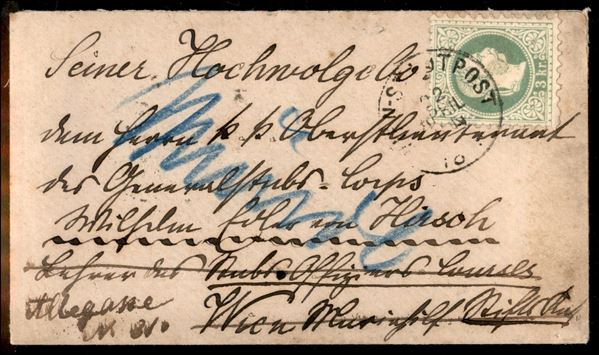 Seiner Hochwolgebo
dem Herrn k k Oberstlieutenant
des Generalstabs-Corps
Wilhelm Edler von Hirsch
Lehrer des Stabs-Officiers Courses
Wien Mariahilf Stifts
3 kr
TPOST